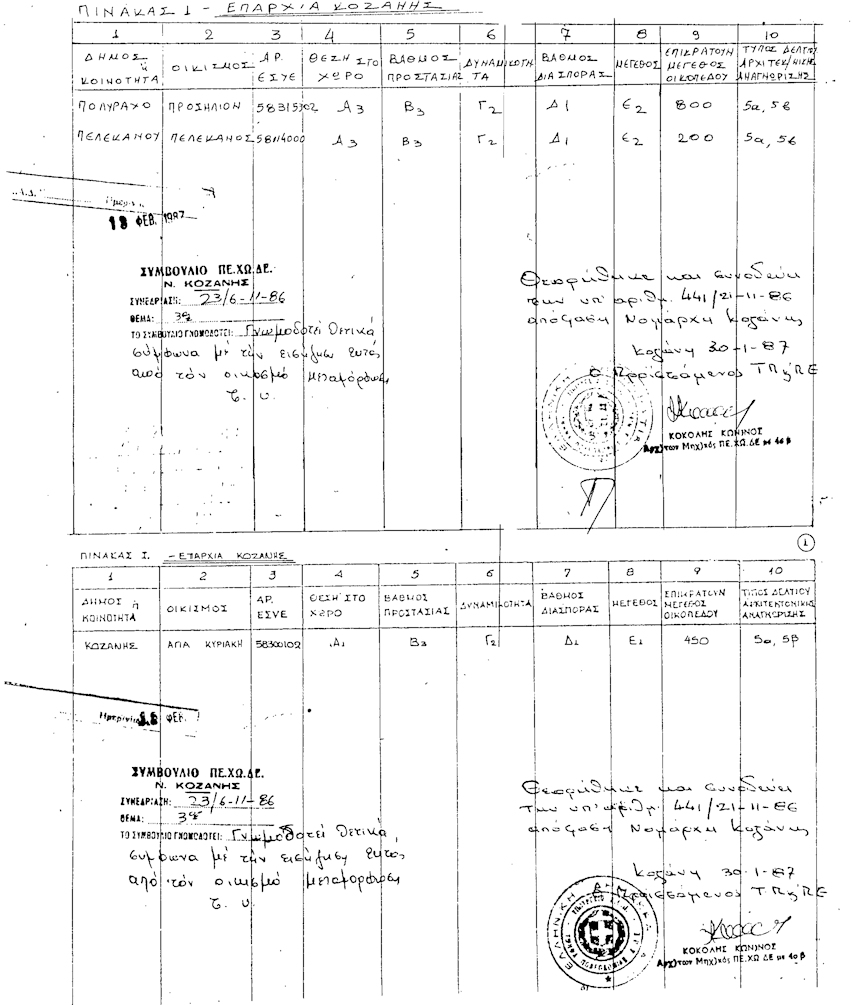 ΠΙΝΑΚΑΣ 1 - ΕΠΑΡΧΙΑ ΚΟΖΑΝΗΣ
1 2 3 4 5 6 7 8 9 10
ΔΗΜΟΣ ή ΚΟΙΝΟΤΗΤΑ ΟΙΚΙΣΜΟΣ ΑΡ. ΕΣΥΕ ΘΕΣΗ ΣΤΟ ΧΩΡΟ ΒΑΘΜΟΣ ΠΡΟΣΤΑΣΙΑΣ ΔΥΝΑΜΙΚΟΤΗΤΑ ΒΑΘΜΟΣ ΔΙΑΣΠΟΡΑΣ ΜΕΓΕΘΟΣ ΕΠΙΚΡΑΤΟΥΝ ΜΕΓΕΘΟΣ ΟΙΚΟΠΕΔΟΥ ΤΥΠΟΣ ΔΕΛΤΙΟΥ ΑΡΧΙΤΕΚ/ΝΙΚΗΣ ΑΝΑΓΝΩΡΙΣΗΣ
ΠΟΛΥΡΑΧΟ ΠΡΟΣΗΛΙΟΝ 58315102 Α3 Β3 Γ2 Δ1 Ε2 800 5α, 5β
ΠΕΛΕΚΑΝΟΥ ΠΕΛΕΚΑΝΟΣ 58114000 Α3 Β3 Γ2 Δ1 Ε2 200 5α, 5β
18 ΦΕΒ. 1987
ΣΥΜΒΟΥΛΙΟ ΠΕ.ΧΩ.ΔΕ.
Ν. ΚΟΖΑΝΗΣ
ΣΥΝΕΔΡΙΑΣΗ: 23/6-11-86
ΘΕΜΑ: 3º
ΤΟ ΣΥΜΒΟΥΛΙΟ ΓΝΩΜΟΔΟΤΕΙ: Γνωμοδοτεί Θετικά
σύμφωνα με την εισήγηση εκτός
από τον οικισμό Μεταμόρφωση
Τ. Υ.
Θεωρήθηκε και συνοδεύει
την υπ' αριθμ. 441/21-11-86
απόφαση Νομάρχη Κοζάνης
Κοζάνη 30-1-87
Ο Προϊστάμενος ΤΠ&ΠΕ
ΚΟΚΟΛΗΣ ΚΩΝ/ΝΟΣ
Αρχ)των Μηχ)κός ΠΕ.ΧΩ.ΔΕ με 4ο β
1
ΠΙΝΑΚΑΣ Ι. - ΕΠΑΡΧΙΑ ΚΟΖΑΝΗΣ
1 2 3 4 5 6 7 8 9 10
ΔΗΜΟΣ ή ΚΟΙΝΟΤΗΤΑ ΟΙΚΙΣΜΟΣ ΑΡ. ΕΣΥΕ ΘΕΣΗ ΣΤΟ ΧΩΡΟ ΒΑΘΜΟΣ ΠΡΟΣΤΑΣΙΑΣ ΔΥΝΑΜΙΚΟΤΗΤΑ ΒΑΘΜΟΣ ΔΙΑΣΠΟΡΑΣ ΜΕΓΕΘΟΣ ΕΠΙΚΡΑΤΟΥΝ ΜΕΓΕΘΟΣ ΟΙΚΟΠΕΔΟΥ ΤΥΠΟΣ ΔΕΛΤΙΟΥ ΑΡΧΙΤΕΚΤΟΝΙΚΗΣ ΑΝΑΓΝΩΡΙΣΗΣ
ΚΟΖΑΝΗΣ ΑΓΙΑ ΚΥΡΙΑΚΗ 58300102 Α1 Β3 Γ2 Δ1 Ε1 450 5α, 5β
ΦΕΒ.
ΣΥΜΒΟΥΛΙΟ ΠΕ.ΧΩ.ΔΕ.
Ν. ΚΟΖΑΝΗΣ
ΣΥΝΕΔΡΙΑΣΗ: 23/6-11-86
ΘΕΜΑ: 3º
ΤΟ ΣΥΜΒΟΥΛΙΟ ΓΝΩΜΟΔΟΤΕΙ: Γνωμοδοτεί Θετικά,
συμφωνα με την εισήγηση εκτός
από τον οικισμό Μεταμόρφωση
Τ. Υ.
Θεωρήθηκε και συνοδεύει
την υπ' αριθμ. 441/21-11-86
απόφαση Νομάρχη Κοζάνης
Κοζάνη 30-1-87
Προϊστάμενος ΤΠ&ΠΕ
ΚΟΚΟΛΗΣ ΚΩΝ/ΝΟΣ
Αρχ)των Μηχ)κός ΠΕ.ΧΩ ΔΕ με 4ο β